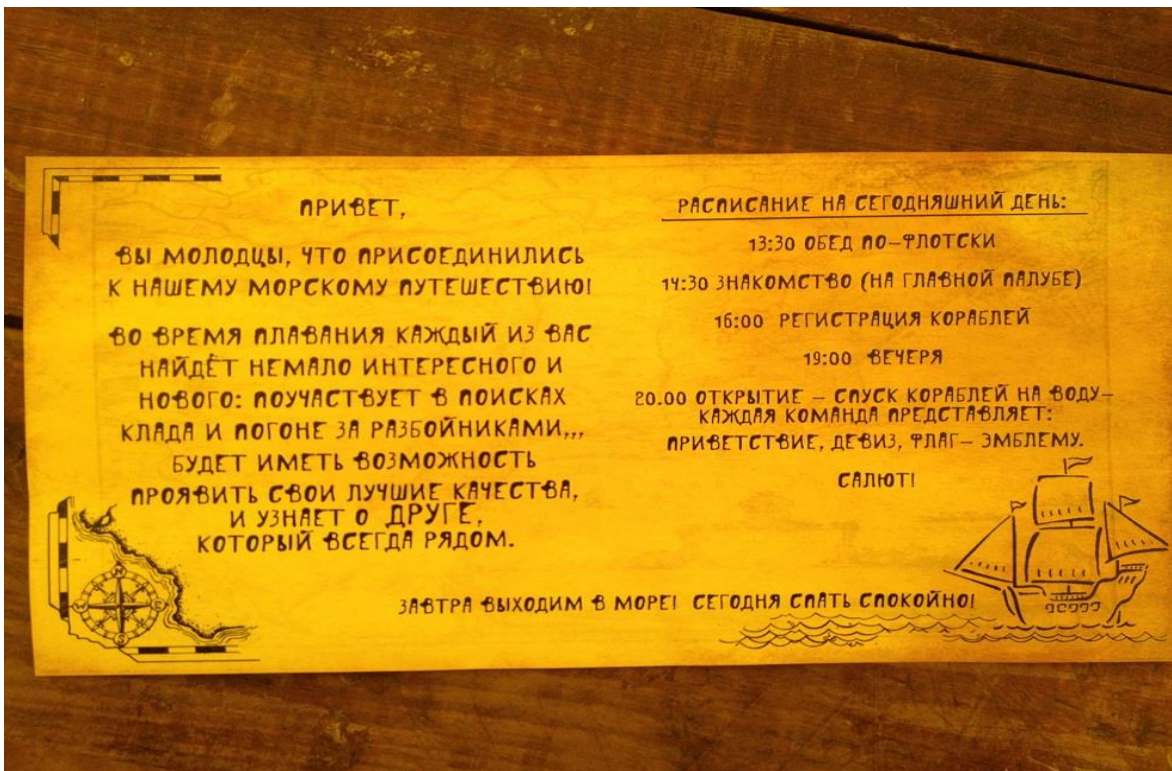 ПРИВЕТ,
ВЫ МОЛОДЦЫ, ЧТО ПРИСОЕДИНИЛИСЬ
К НАШЕМУ МОРСКОМУ ПУТЕШЕСТВИЮ!
ВО ВРЕМЯ ПЛАВАНИЯ КАЖДЫЙ ИЗ ВАС
НАЙДЁТ НЕМАЛО ИНТЕРЕСНОГО И
НОВОГО: ПОУЧАСТВУЕТ В ПОИСКАХ
КЛАДА И ПОГОНЕ ЗА РАЗБОЙНИКАМИ,,,
БУДЕТ ИМЕТЬ ВОЗМОЖНОСТЬ
ПРОЯВИТЬ СВОИ ЛУЧШИЕ КАЧЕСТВА,
И УЗНАЕТ О ДРУГЕ,
КОТОРЫЙ ВСЕГДА РЯДОМ.
РАСПИСАНИЕ НА СЕГОДНЯШНИЙ ДЕНЬ:
13:30 ОБЕД ПО-ФЛОТСКИ
14:30 ЗНАКОМСТВО (НА ГЛАВНОЙ ПАЛУБЕ)
16:00 РЕГИСТРАЦИЯ КОРАБЛЕЙ
19:00 ВЕЧЕРЯ
20.00 ОТКРЫТИЕ – СПУСК КОРАБЛЕЙ НА ВОДУ–
КАЖДАЯ КОМАНДА ПРЕДСТАВЛЯЕТ:
ПРИВЕТСТВИЕ, ДЕВИЗ, ФЛАГ– ЭМБЛЕМУ.
САЛЮТ!
ЗАВТРА ВЫХОДИМ В МОРЕ! СЕГОДНЯ СПАТЬ СПОКОЙНО!